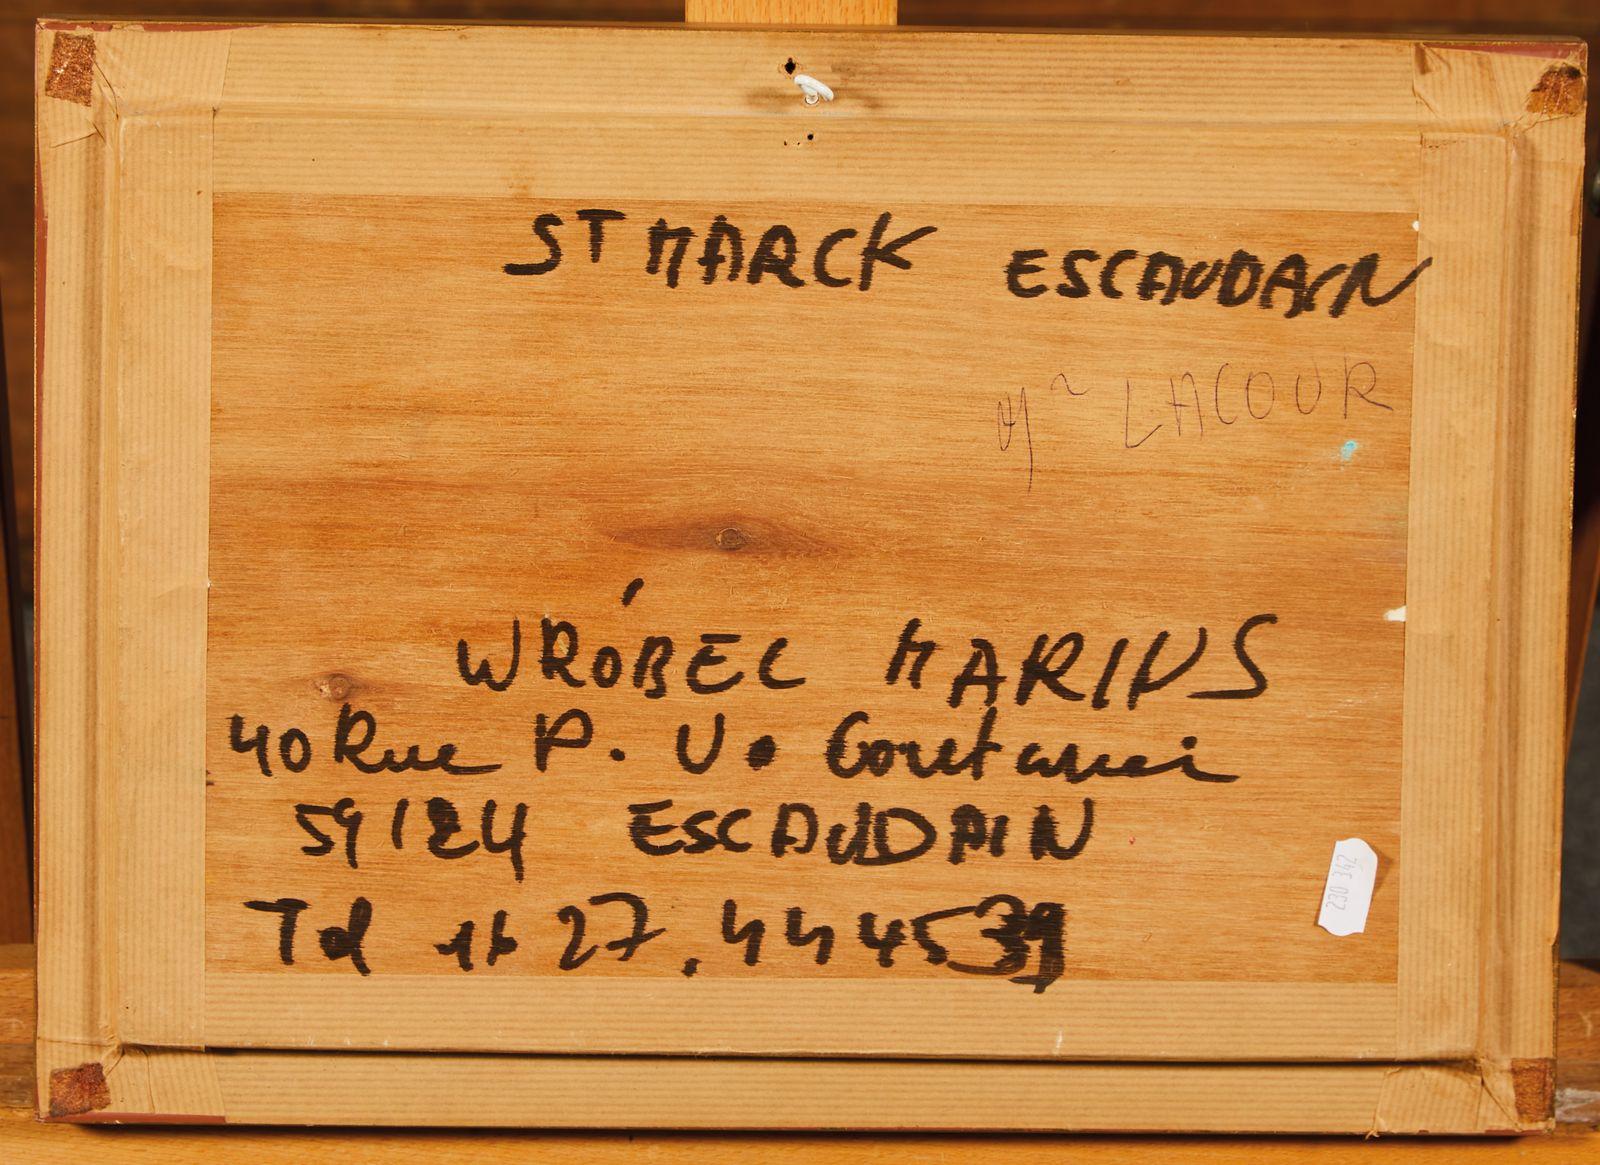 ST MARCK ESCAUDAIN
Mr LACOUR
WRÓBEL MARIUS
40 Rue P. V. Couturier
59124 ESCAUDAIN
Tel 16 27.444539
230 342